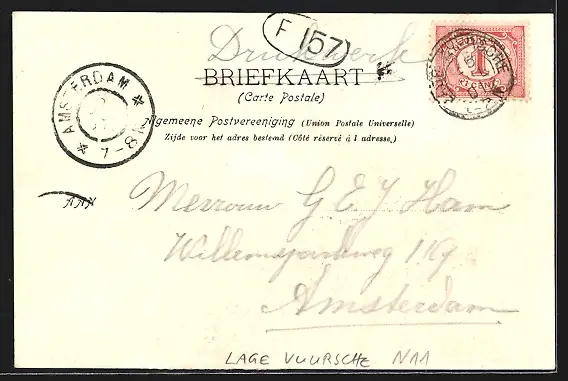 F 157
Drukwerk
1
AMSTERDAM
7-8N
BRIEFKAART
(Carte Postale)
Algemeene Postvereeniging (Union Postale Universelle)
Zijde voor het adres bestemd (Côté réservé à l adresse)
AAN
Mevrouw G E J Ham
Willemsparkweg 119
Amsterdam
LAGE VUURSCHE N11